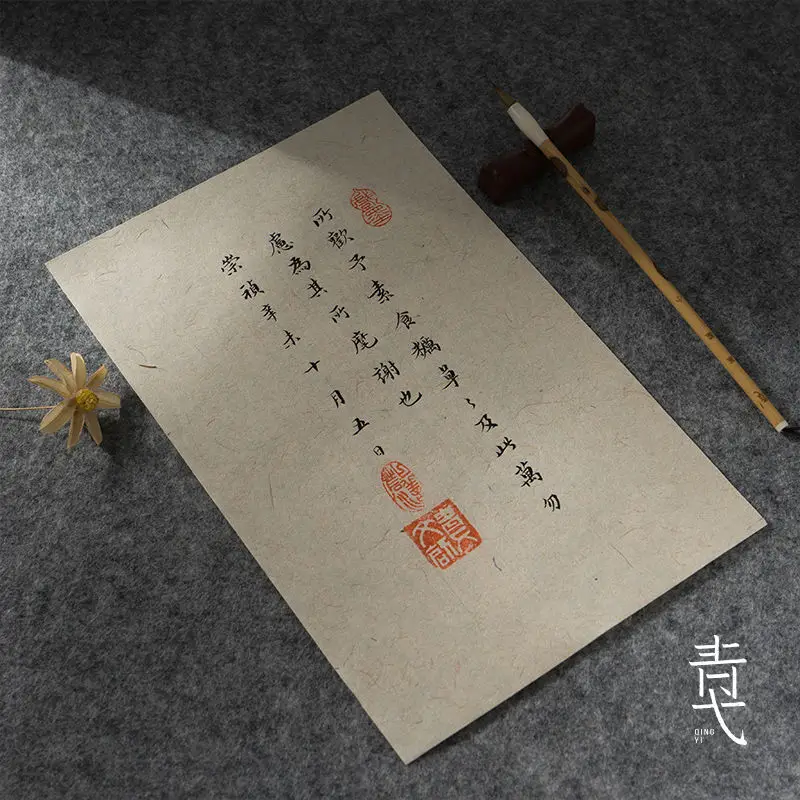 所歡予素食糲草々及此萬勿
慮為其所麾謝也
崇禎辛未十月五日
青弋
QING
YI